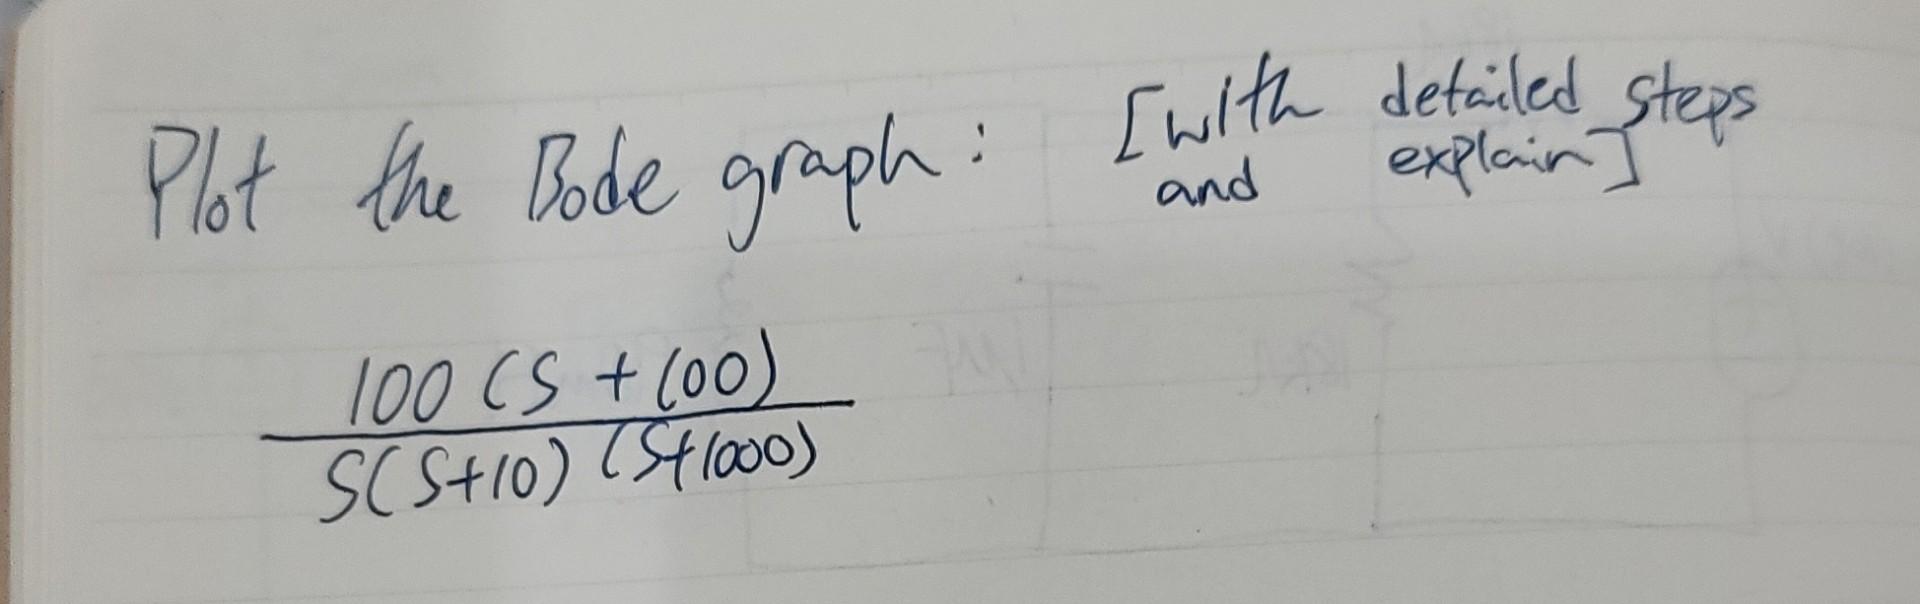 Plot the Bode graph: [with detailed steps
and explain]
100 (S + 100)
S(S+10) (S+1000)